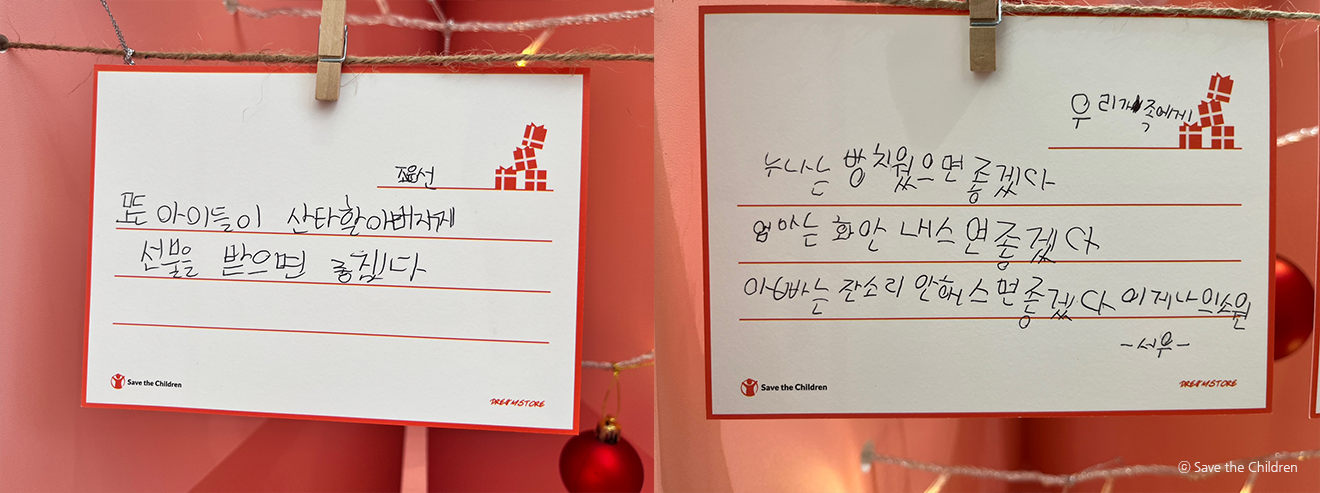 조윤선
모든 아이들이 산타할아버지께
선물을 받으면 좋겠다
Save the Children
DREAMSTORE
우리가족에게
누나는 방 치웠으면 좋겠다
엄마는 화 안 내스면 좋겠다
아빠는 잔소리 안해스면 좋겠다 이게 나의 소원
-서우-
Save the Children
DREAMSTORE
© Save the Children